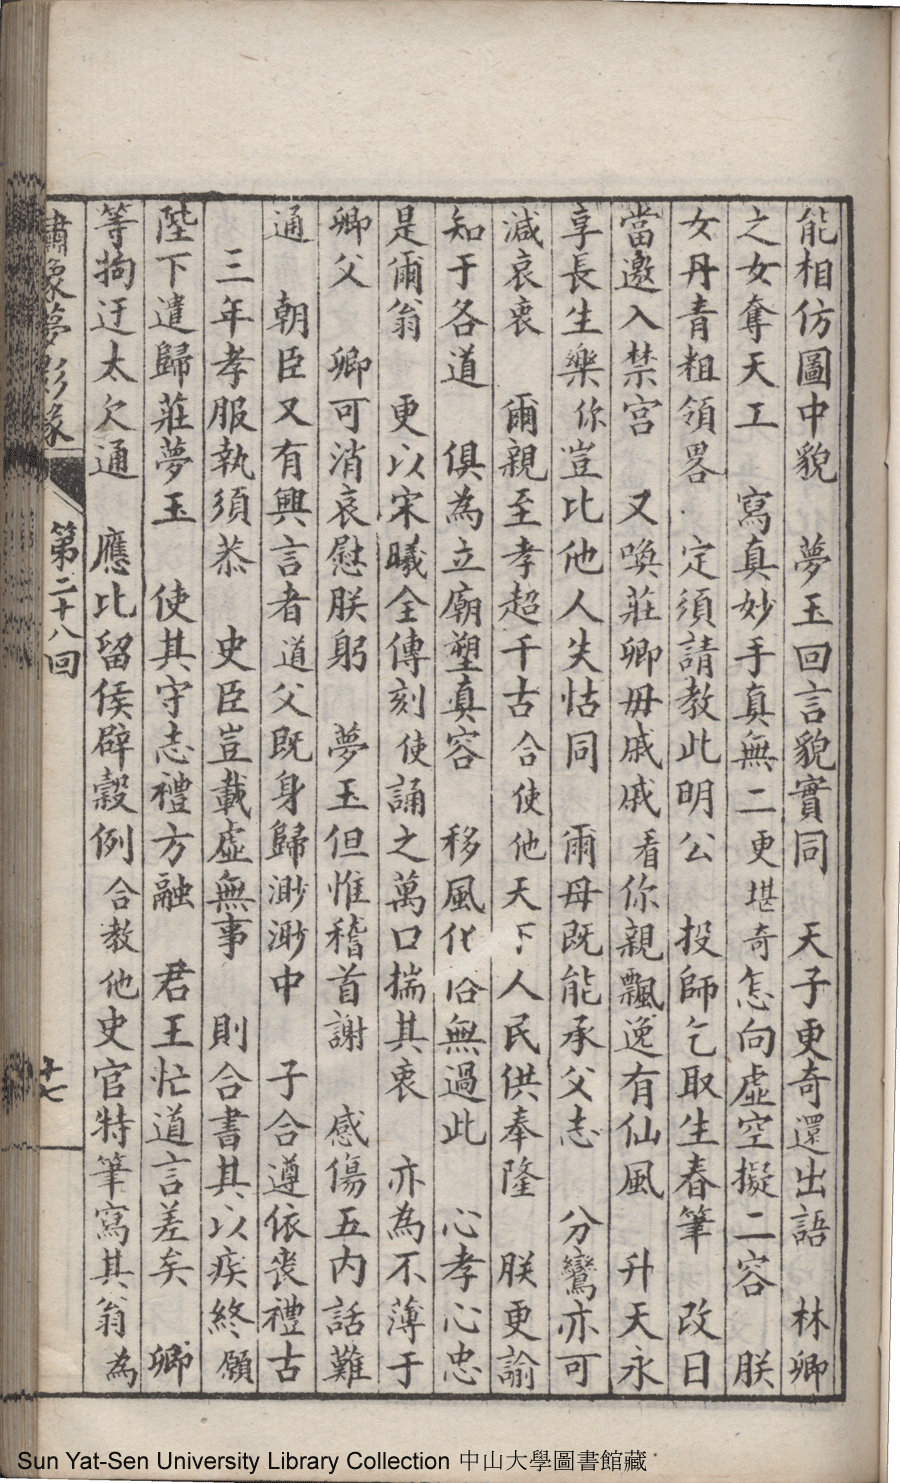 能相仿圖中貌　夢玉回言貌實同　天子更奇還出語　林卿
之女奪天工　寫真妙手真無二更堪奇怎向虛空擬二容　朕
女丹青粗領畧　定須請教此明公　投師乞取生春筆　改日
當邀入禁宮　又喚莊卿毋戚戚看你親飄逸有仙風　升天永
享長生樂你豈比他人失怙同　爾母既能承父志　分鸞亦可
減哀衷　爾親至孝超千古合使他天下人民供奉隆　朕更諭
知于各道　俱為立廟塑真容　移風化俗無過此　心孝心忠
是爾翁　更以宋曦全傳刻使誦之萬口揣其衷　亦為不薄于
卿父　卿可消哀慰朕躬　夢玉但惟稽首謝　感傷五內話難
通　朝臣又有興言者道父既身歸渺渺中　子合遵依喪禮古
三年孝服執須恭　史臣豈載虛無事　則合書其以疾終願
陛下遣歸莊夢玉　使其守志禮方融　君王忙道言差矣　卿
等拘迂太欠通　應比留侯辟穀例合教他史官特筆寫其翁為
繡像夢影緣　第二十八回　十七
Sun Yat-Sen University Library Collection 中山大學圖書館藏